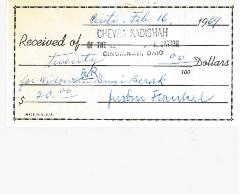 Cinti, Feb. 16, 1969
CHEVRA KADISHAH
Received of OF THE
CINCINNATI, OHIO
Twenty 00/100 Dollars
for Widows Bnai Berak
$ 20.00 Justin Frankel